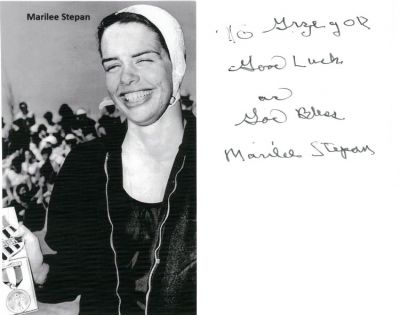 Marilee Stepan
To Grzegor
Good Luck
an
God Bless
Marilee Stepan